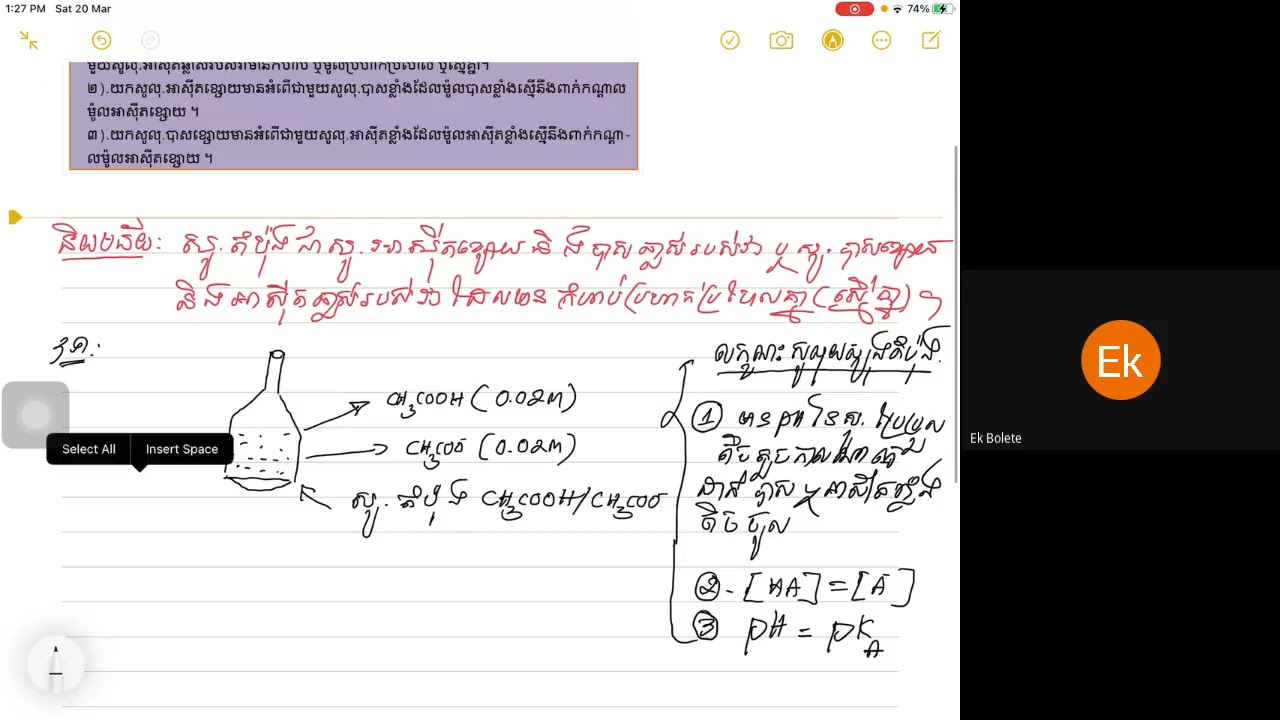 1:27 PM Sat 20 Mar
74%
មួយសូលុ.អាស៊ីតឆ្លាស់របស់វាមានកំហាប់ ឬម៉ូលប្រហាក់ប្រហែល ឬស្មើគ្នា។
២).យកសូលុ.អាស៊ីតខ្សោយមានអំពើជាមួយសូលុ.បាសខ្លាំងដែលម៉ូលបាសខ្លាំងស្មើនឹងពាក់កណ្ដាល
ម៉ូលអាស៊ីតខ្សោយ ។
៣).យកសូលុ.បាសខ្សោយមានអំពើជាមួយសូលុ.អាស៊ីតខ្លាំងដែលម៉ូលអាស៊ីតខ្លាំងស្មើនឹងពាក់កណ្ដា-
លម៉ូលអាស៊ីតខ្សោយ ។
និយមន័យ: សូ.តំប៉ុងជាសូ.អាស៊ីតខ្សោយនិងបាសឆ្លាស់របស់វា ឬ សូ.បាសខ្សោយ
និងអាស៊ីតឆ្លាស់របស់វា ដែលមានកំហាប់ប្រហាក់ប្រហែលគ្នា (ស្មើគ្នា) ។
ឧទា:
CH₃COOH (0.02M)
CH₃COO⁻ (0.02M)
សូ.តំប៉ុង CH₃COOH/CH₃COO⁻
Select All Insert Space
លក្ខណះសូលុយស្យុងតំប៉ុង.
① មាន pH នៃសូ. ប្រែប្រួល
តិចតួចកាលណាគេ
ដាក់បាស ឬអាស៊ីតខ្លាំង
តិចចូល
②- [HA] = [A⁻]
③ pH = pKA
Ek
Ek Bolete